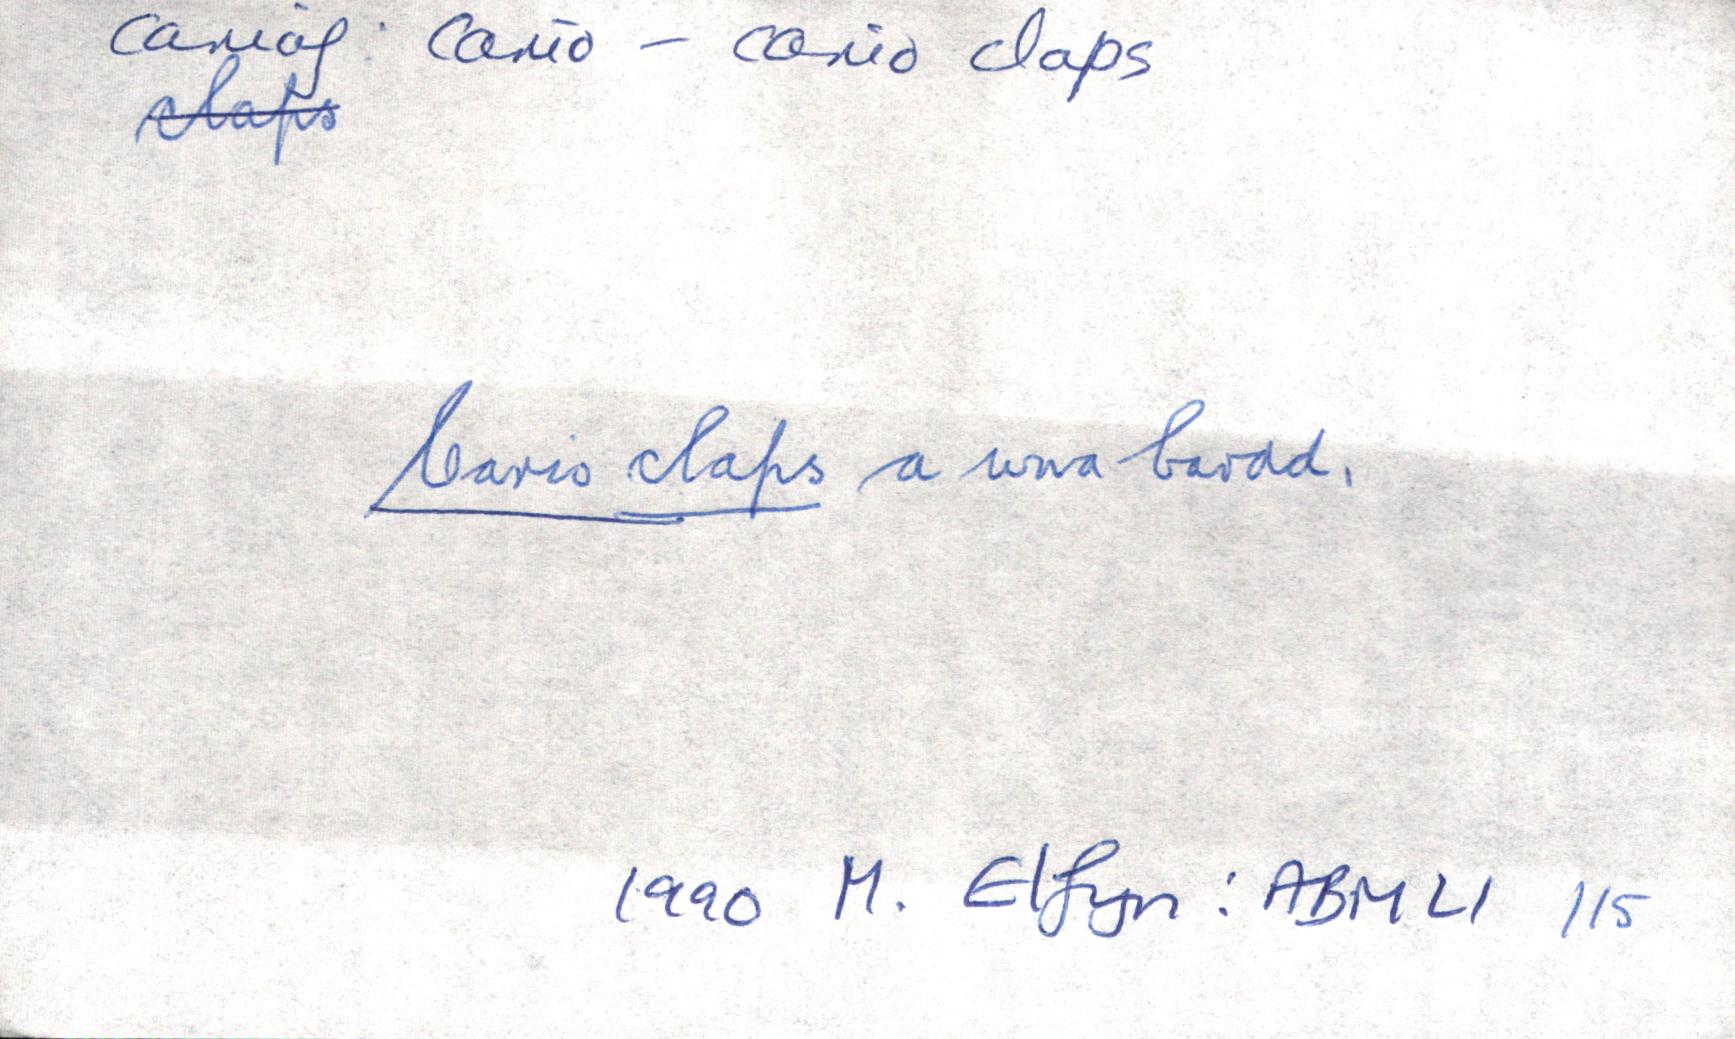 cariaf: cario – cario claps
claps
Cario claps a wna bardd.
1990 M. Elfyn: ABMLl 115